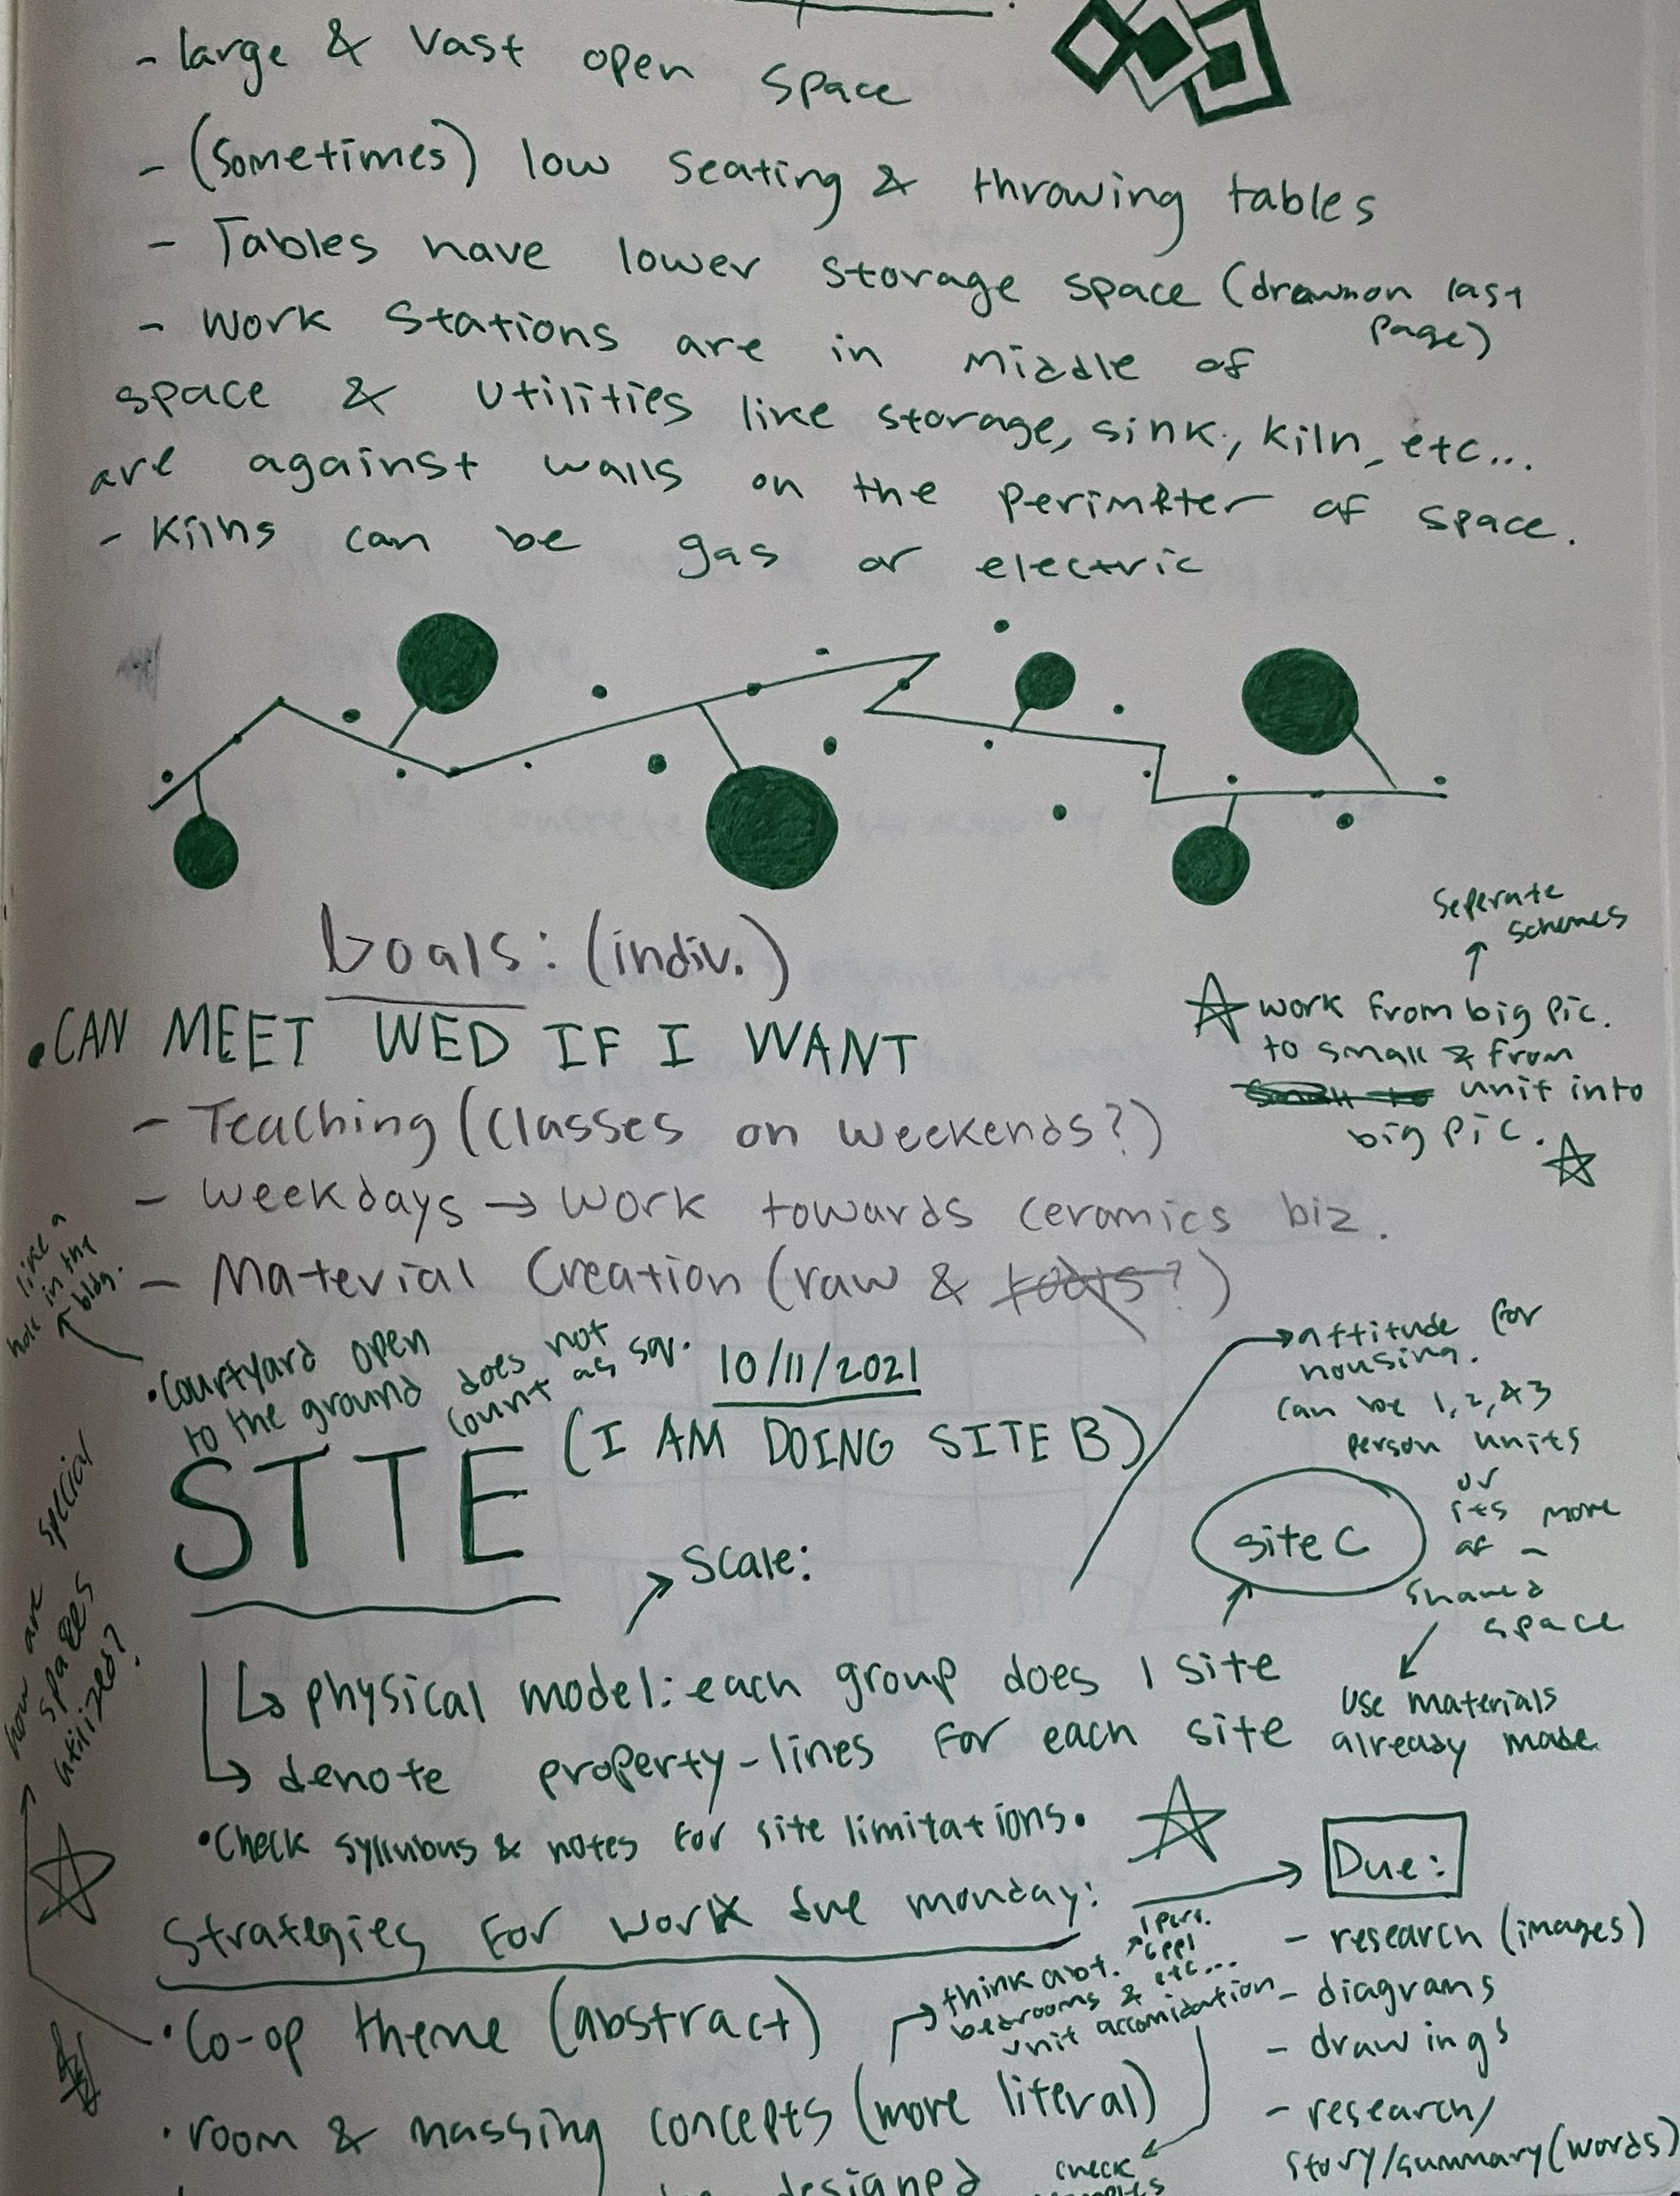 - large & vast open space
- (sometimes) low seating & throwing tables
- Tables have lower storage space (drawn on last
page)
- work stations are in middle of
space & utilities like storage, sink, kiln, etc...
are against walls on the perimeter of space.
- Kilns can be gas or electric
Goals: (indiv.)
• CAN MEET WED IF I WANT
- Teaching (classes on weekends?)
- weekdays → work towards ceramics biz.
- Material Creation (raw & tools?)
seperate
schemes
work from big pic.
to small & from
small to unit into
big pic.
like a
hole in the
bldg.
• Courtyard open
to the ground does not
count as sqr.
10/11/2021
SITE (I AM DOING SITE B)
→ attitude for
housing.
can be 1, 2, & 3
person units
or
its more
of ~
shared
space
site C
use materials
already made
→ Scale:
↳ physical model: each group does 1 site
↳ denote property-lines for each site
• Check syllubus & notes for site limitations.
how are special
spaces
utilized?
Strategies for work due monday:
Due:
- research (images)
- diagrams
- drawings
- research/
story/summary (words)
• Co-op theme (abstract)
→ think abt. 1 pers.
bedrooms & etc...
unit accomidation
• room & massing concepts (more literal)
designed
check